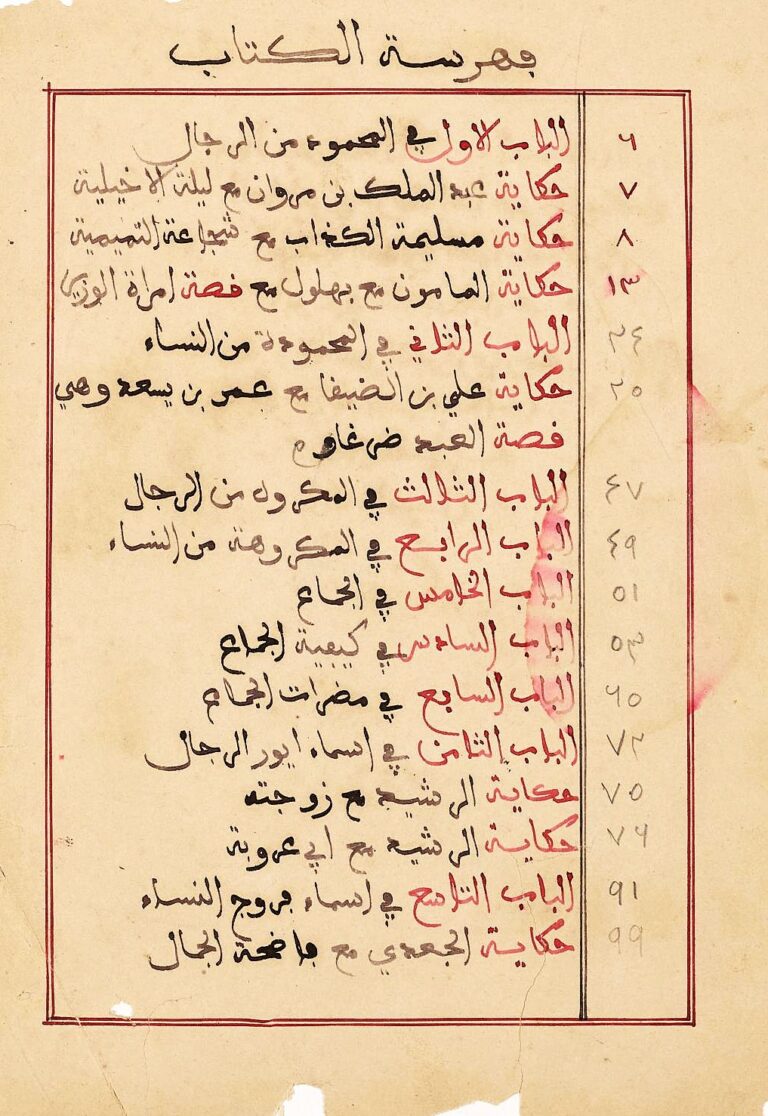 فهرسة الكتاب
الباب الاول في المحموده من الرجال ٦
حكاية عبد الملك بن مروان مع ليلة الاخيلية ٧
حكاية مسليمة الكذاب مع شجاعة التميمية ٨
حكاية المامون مع بهلول مع قصة امراة الوزير ١٣
الباب الثاني في المحمودة من النساء ٢٤
حكاية علي بن الضيفا مع عمر بن يسعد وهي ٢٥
قصة العبد ضرغام
الباب الثالث في المكروه من الرجال ٤٧
الباب الرابع في المكروهة من النساء ٤٩
الباب الخامس في الجماع ٥١
الباب السادس في كيفية الجماع ٥٣
الباب السابع في مضرات الجماع ٦٥
الباب الثامن في اسماء ايور الرجال ٧٢
حكاية الرشيد مع زوجته ٧٥
حكاية الرشيد مع ابي عروبة ٧٦
الباب التاسع في اسماء فروج النساء ٩١
حكاية الجعدي مع فاضحة الجمال ٩٩